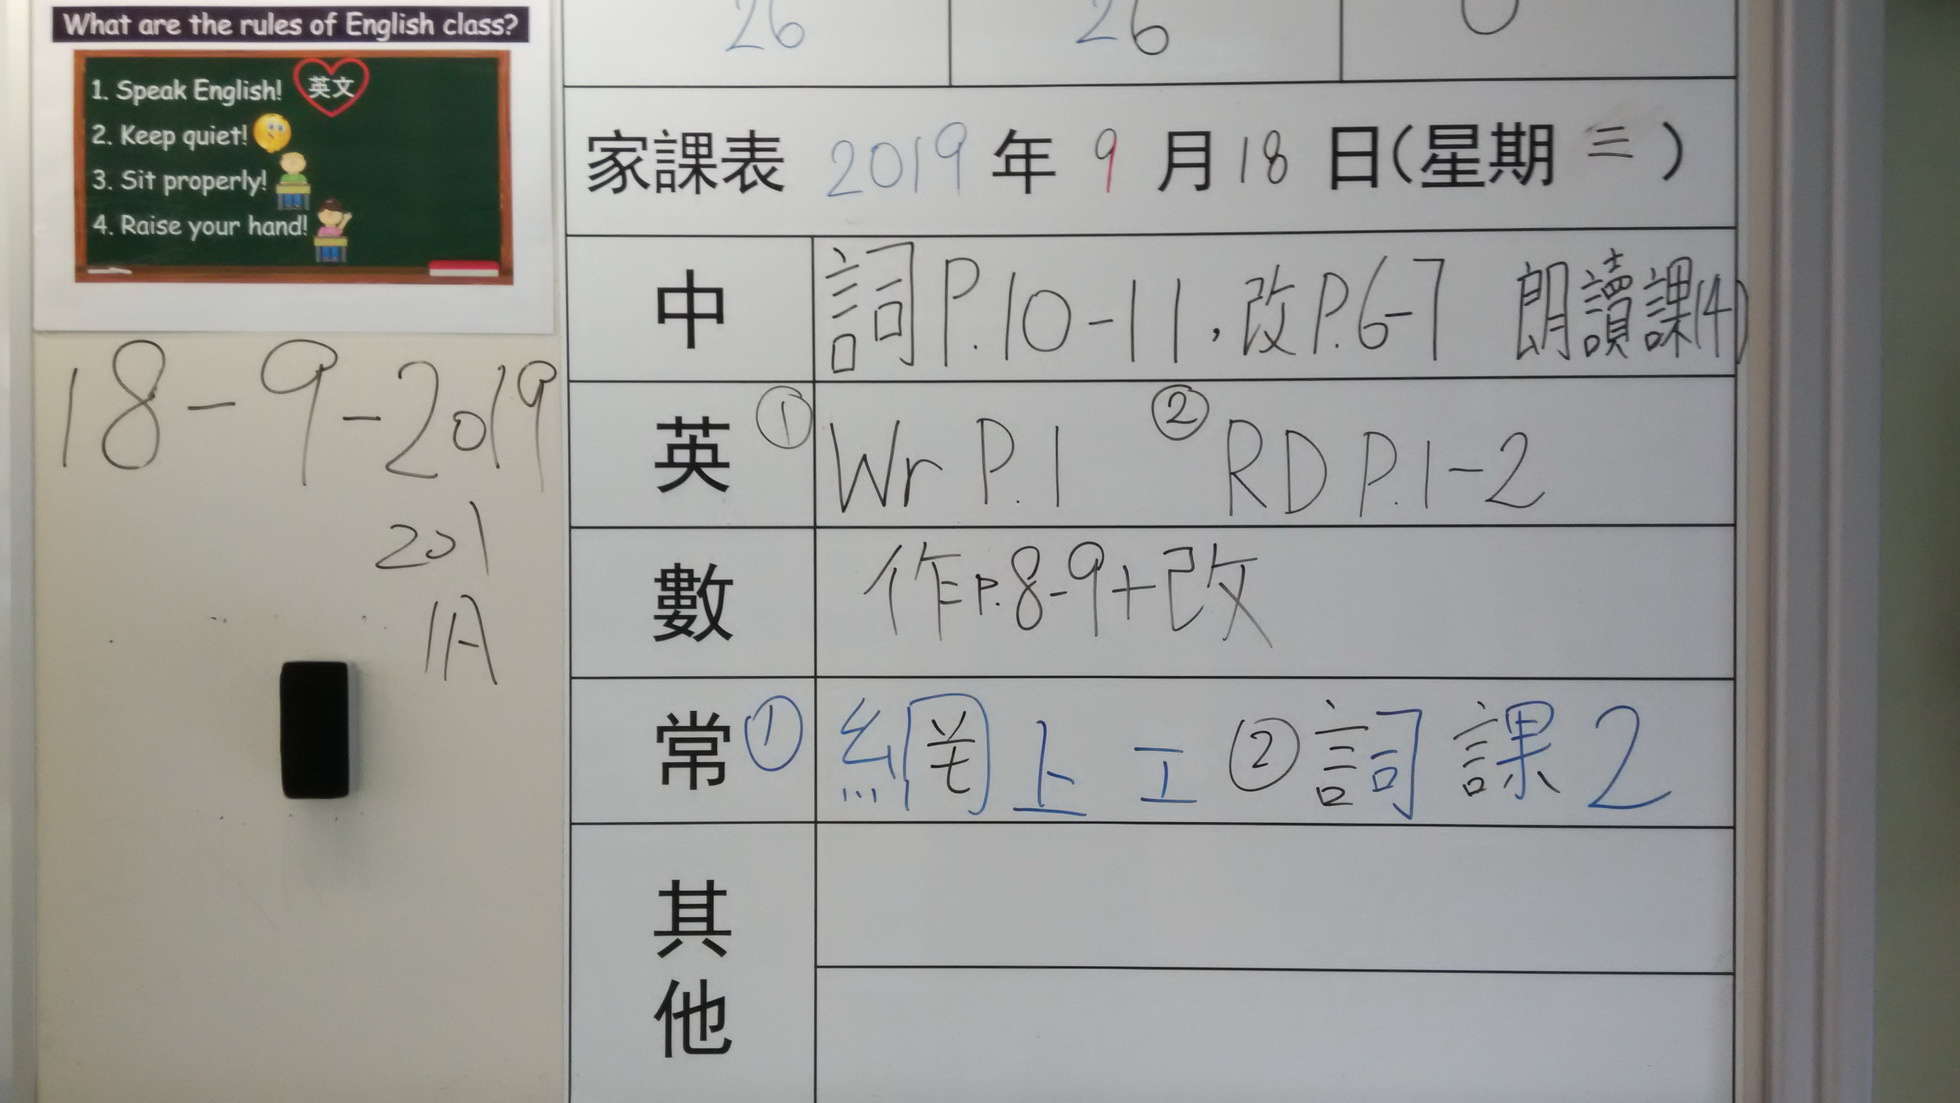 What are the rules of English class?
1. Speak English! 英文
2. Keep quiet!
3. Sit properly!
4. Raise your hand!
18-9-2019
201
1A
26 26 0
家課表 2019 年 9 月 18 日(星期 三)
中 詞P.10-11,改P.6-7 朗讀課(4)
英 ① Wr P.1 ② RD P.1-2
數 作P.8-9+改
常 ① 網上工 ② 詞課2
其他